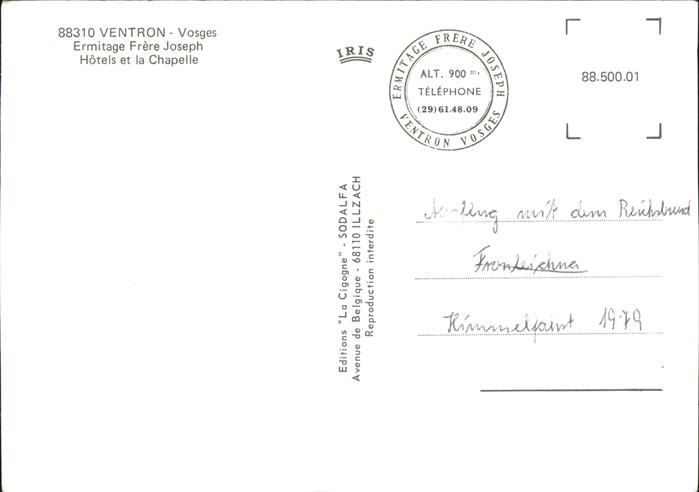 88310 VENTRON - Vosges
Ermitage Frère Joseph
Hôtels et la Chapelle
IRIS
ERMITAGE FRÈRE JOSEPH
ALT. 900 m.
TÉLÉPHONE
(29)61.48.09
VENTRON VOSGES
88.500.01
Editions "La Cigogne" - SODALFA
Avenue de Belgique - 68110 ILLZACH
Reproduction interdite
mit dem Reichsbund
Himmelfahrt 1979